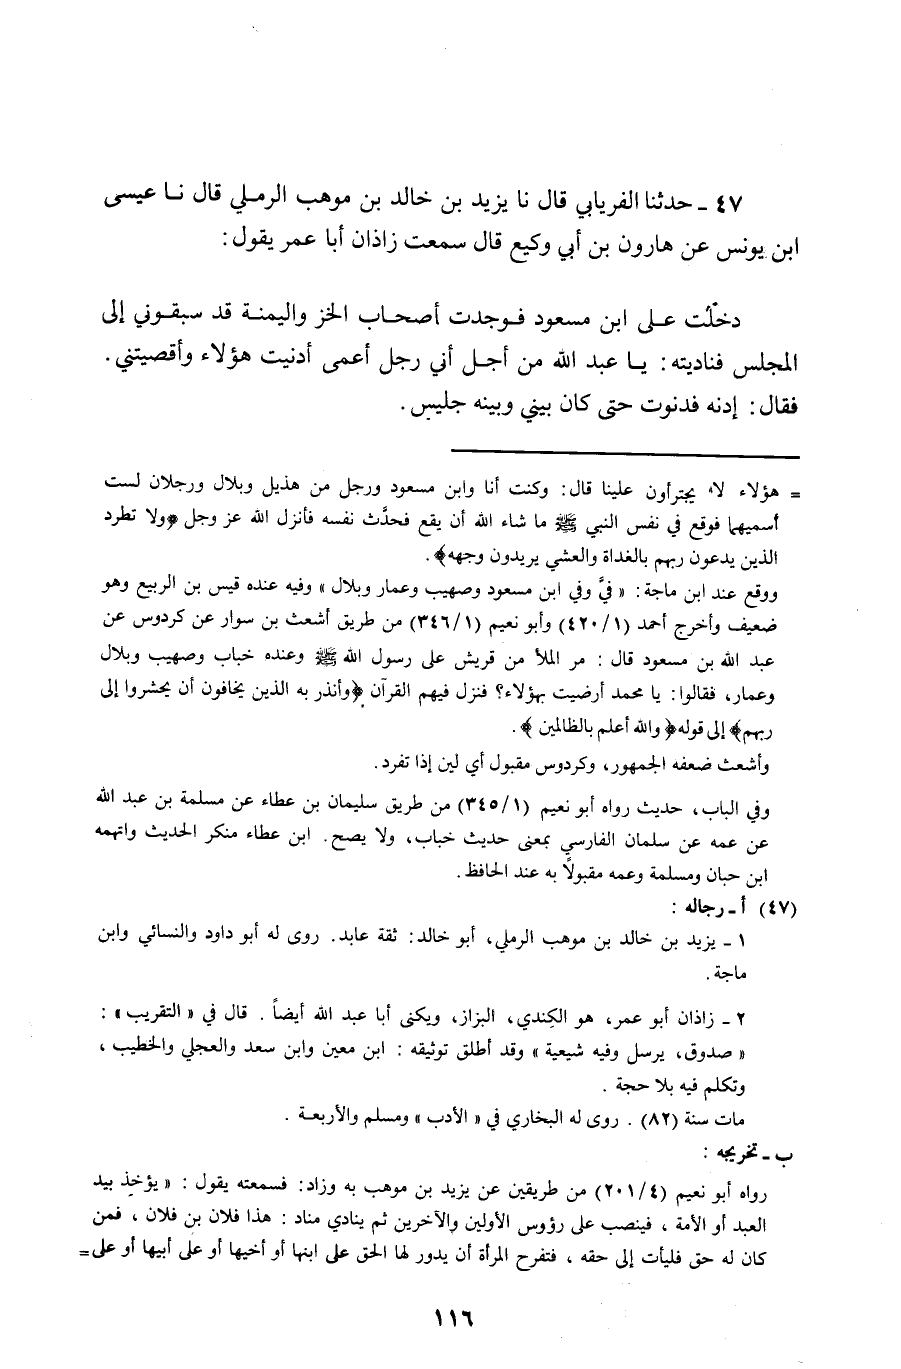 ٤٧ ـ حدثنا الفريابي قال نا يزيد بن خالد بن موهب الرملي قال نا عيسى
ابن يونس عن هارون بن أبي وكيع قال سمعت زاذان أبا عمر يقول:
دخلت على ابن مسعود فوجدت أصحاب الخز واليمنة قد سبقوني إلى
المجلس فناديته: يا عبد الله من أجل أني رجل أعمى أدنيت هؤلاء وأقصيتني.
فقال: إدنه فدنوت حتى كان بيني وبينه جليس.
= هؤلاء لا يجترأون علينا قال: وكنت أنا وابن مسعود ورجل من هذيل وبلال ورجلان لست
أسميهما فوقع في نفس النبي ﷺ ما شاء الله أن يقع فحدَّث نفسه فأنزل الله عز وجل ﴿ولا تطرد
الذين يدعون ربهم بالغداة والعشي يريدون وجهه﴾.
ووقع عند ابن ماجة: «فيَّ وفي ابن مسعود وصهيب وعمار وبلال» وفيه عنده قيس بن الربيع وهو
ضعيف وأخرج أحمد (٤٢٠/١) وأبو نعيم (٣٤٦/١) من طريق أشعث بن سوار عن كردوس عن
عبد الله بن مسعود قال: مر الملأ من قريش على رسول الله ﷺ وعنده خباب وصهيب وبلال
وعمار، فقالوا: يا محمد أرضيت بهؤلاء؟ فنزل فيهم القرآن ﴿وأنذر به الذين يخافون أن يحشروا إلى
ربهم﴾ إلى قوله ﴿والله أعلم بالظالمين﴾.
وأشعث ضعفه الجمهور، وكردوس مقبول أي لين إذا تفرد.
وفي الباب، حديث رواه أبو نعيم (٣٤٥/١) من طريق سليمان بن عطاء عن مسلمة بن عبد الله
عن عمه عن سلمان الفارسي بمعنى حديث خباب، ولا يصح. ابن عطاء منكر الحديث واتهمه
ابن حبان ومسلمة وعمه مقبولاً به عند الحافظ.
(٤٧) أ ـ رجاله:
١ ـ يزيد بن خالد بن موهب الرملي، أبو خالد: ثقة عابد. روى له أبو داود والنسائي وابن
ماجة.
٢ ـ زاذان أبو عمر، هو الكِندي، البزاز، ويكنى أبا عبد الله أيضاً. قال في «التقريب»:
«صدوق، يرسل وفيه شيعية» وقد أطلق توثيقه: ابن معين وابن سعد والعجلي والخطيب،
وتكلم فيه بلا حجة.
مات سنة (٨٢). روى له البخاري في «الأدب» ومسلم والأربعة.
ب ـ تخريجه:
رواه أبو نعيم (٢٠١/٤) من طريقين عن يزيد بن موهب به وزاد: فسمعته يقول: «يؤخذ بيد
العبد أو الأمة، فينصب على رؤوس الأولين والآخرين ثم ينادي مناد: هذا فلان بن فلان، فمن
كان له حق فليأت إلى حقه، فتفرح المرأة أن يدور لها الحق على ابنها أو أخيها أو على أبيها أو على=
١١٦